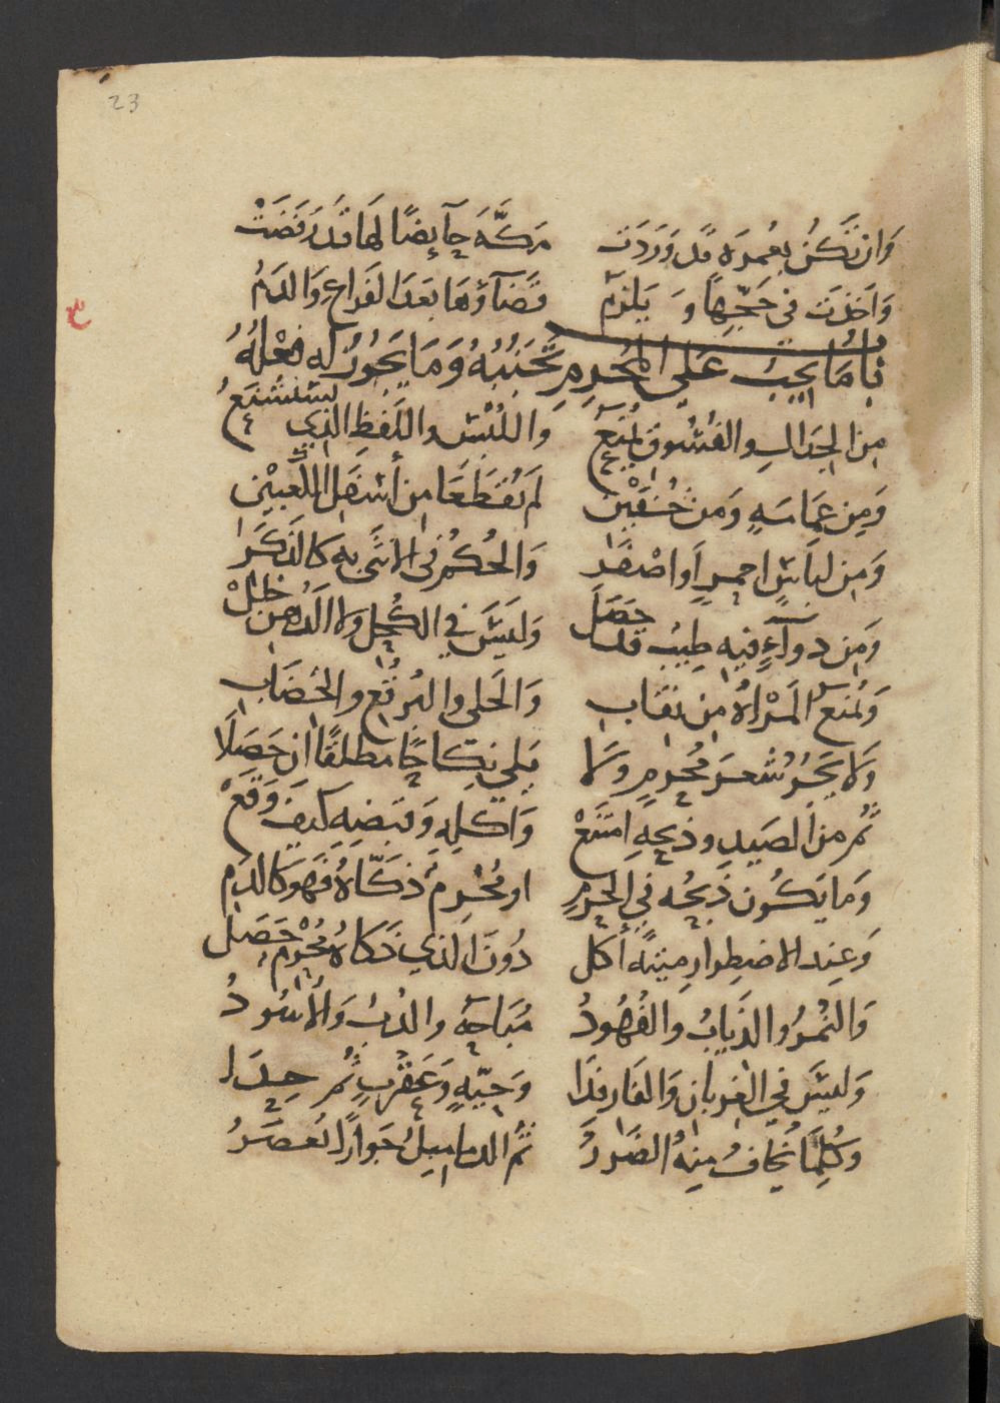 23
وَان تَكُنْ بِعُمرَه قَد وَرَدَت مَكَّةَ حَآيِضًا لَهَا قَد رَفَضَتْ
وَاَخَذَت في حَجِّهَا وَ يَلزَم قَضَآؤهَا بَعدَ الفَراغ وَالدَمُ
بَابُ مَا يَجِبُ عَلى المُحرِمِ تَجَنُّبُهُ وَمَا يَجُوزُ لَه فِعْلُهُ
مِن الجدَالِ والفُسُوقِ يُمنَع وَاللُبْسِ واللَفظِ الذِي يُستَشنَعُ
وَمِن عِمَامَهٍ وَمن خُفَيْن لَم يُقطَعَا مِن أسفَل الكَعبَيْن
وَمِن لبَاسٍ احمرٍ اَو اصْفَر وَالحُكمُ في الانثَى بهِ كَالذَكَر
وَمِن دوآءٍ فيهِ طِيبُ قد حَصَل وَليَسَ في الكُحل ولا الدُهن خلَلْ
وَتُمنَع المَرْاةُ مِن نقَاب وَالحَلى والبُرقُع والخضَاب
وَلا يَجُز شعَر مُحرمٍ وَلا يَلي نِكَاحًا مُطلَقًا ان حَصَلَا
ثُم من الصَيدِ وذبحِهِ امتَنَعْ وَاَكلِهِ وَقبَضِهِ كَيفَ وَقَعْ
وَمَا يَكُون ذَبحُه في الحَرمِ او مُحْرِمٌ ذكَّاهُ فَهوَ كالدم
وَعِند الاضطِرار مَيتَةً أكل دُونَ الذي ذكاهُ مُحْرِم حَصَل
وَالنُمرُ والذيابُ والفُهُودُ مُبَاحَة والدُبُ وَالأُسُودُ
وَليسَ في الغربَانِ وَالفَار فِدَا وَحيّهٍ وَعَقربٍ ثُم حِدَا
وَكُلمَا يُخافُ مِنهُ الضَررُ ثُم الدمَامِيلُ جَوازًا تُعصَرُ